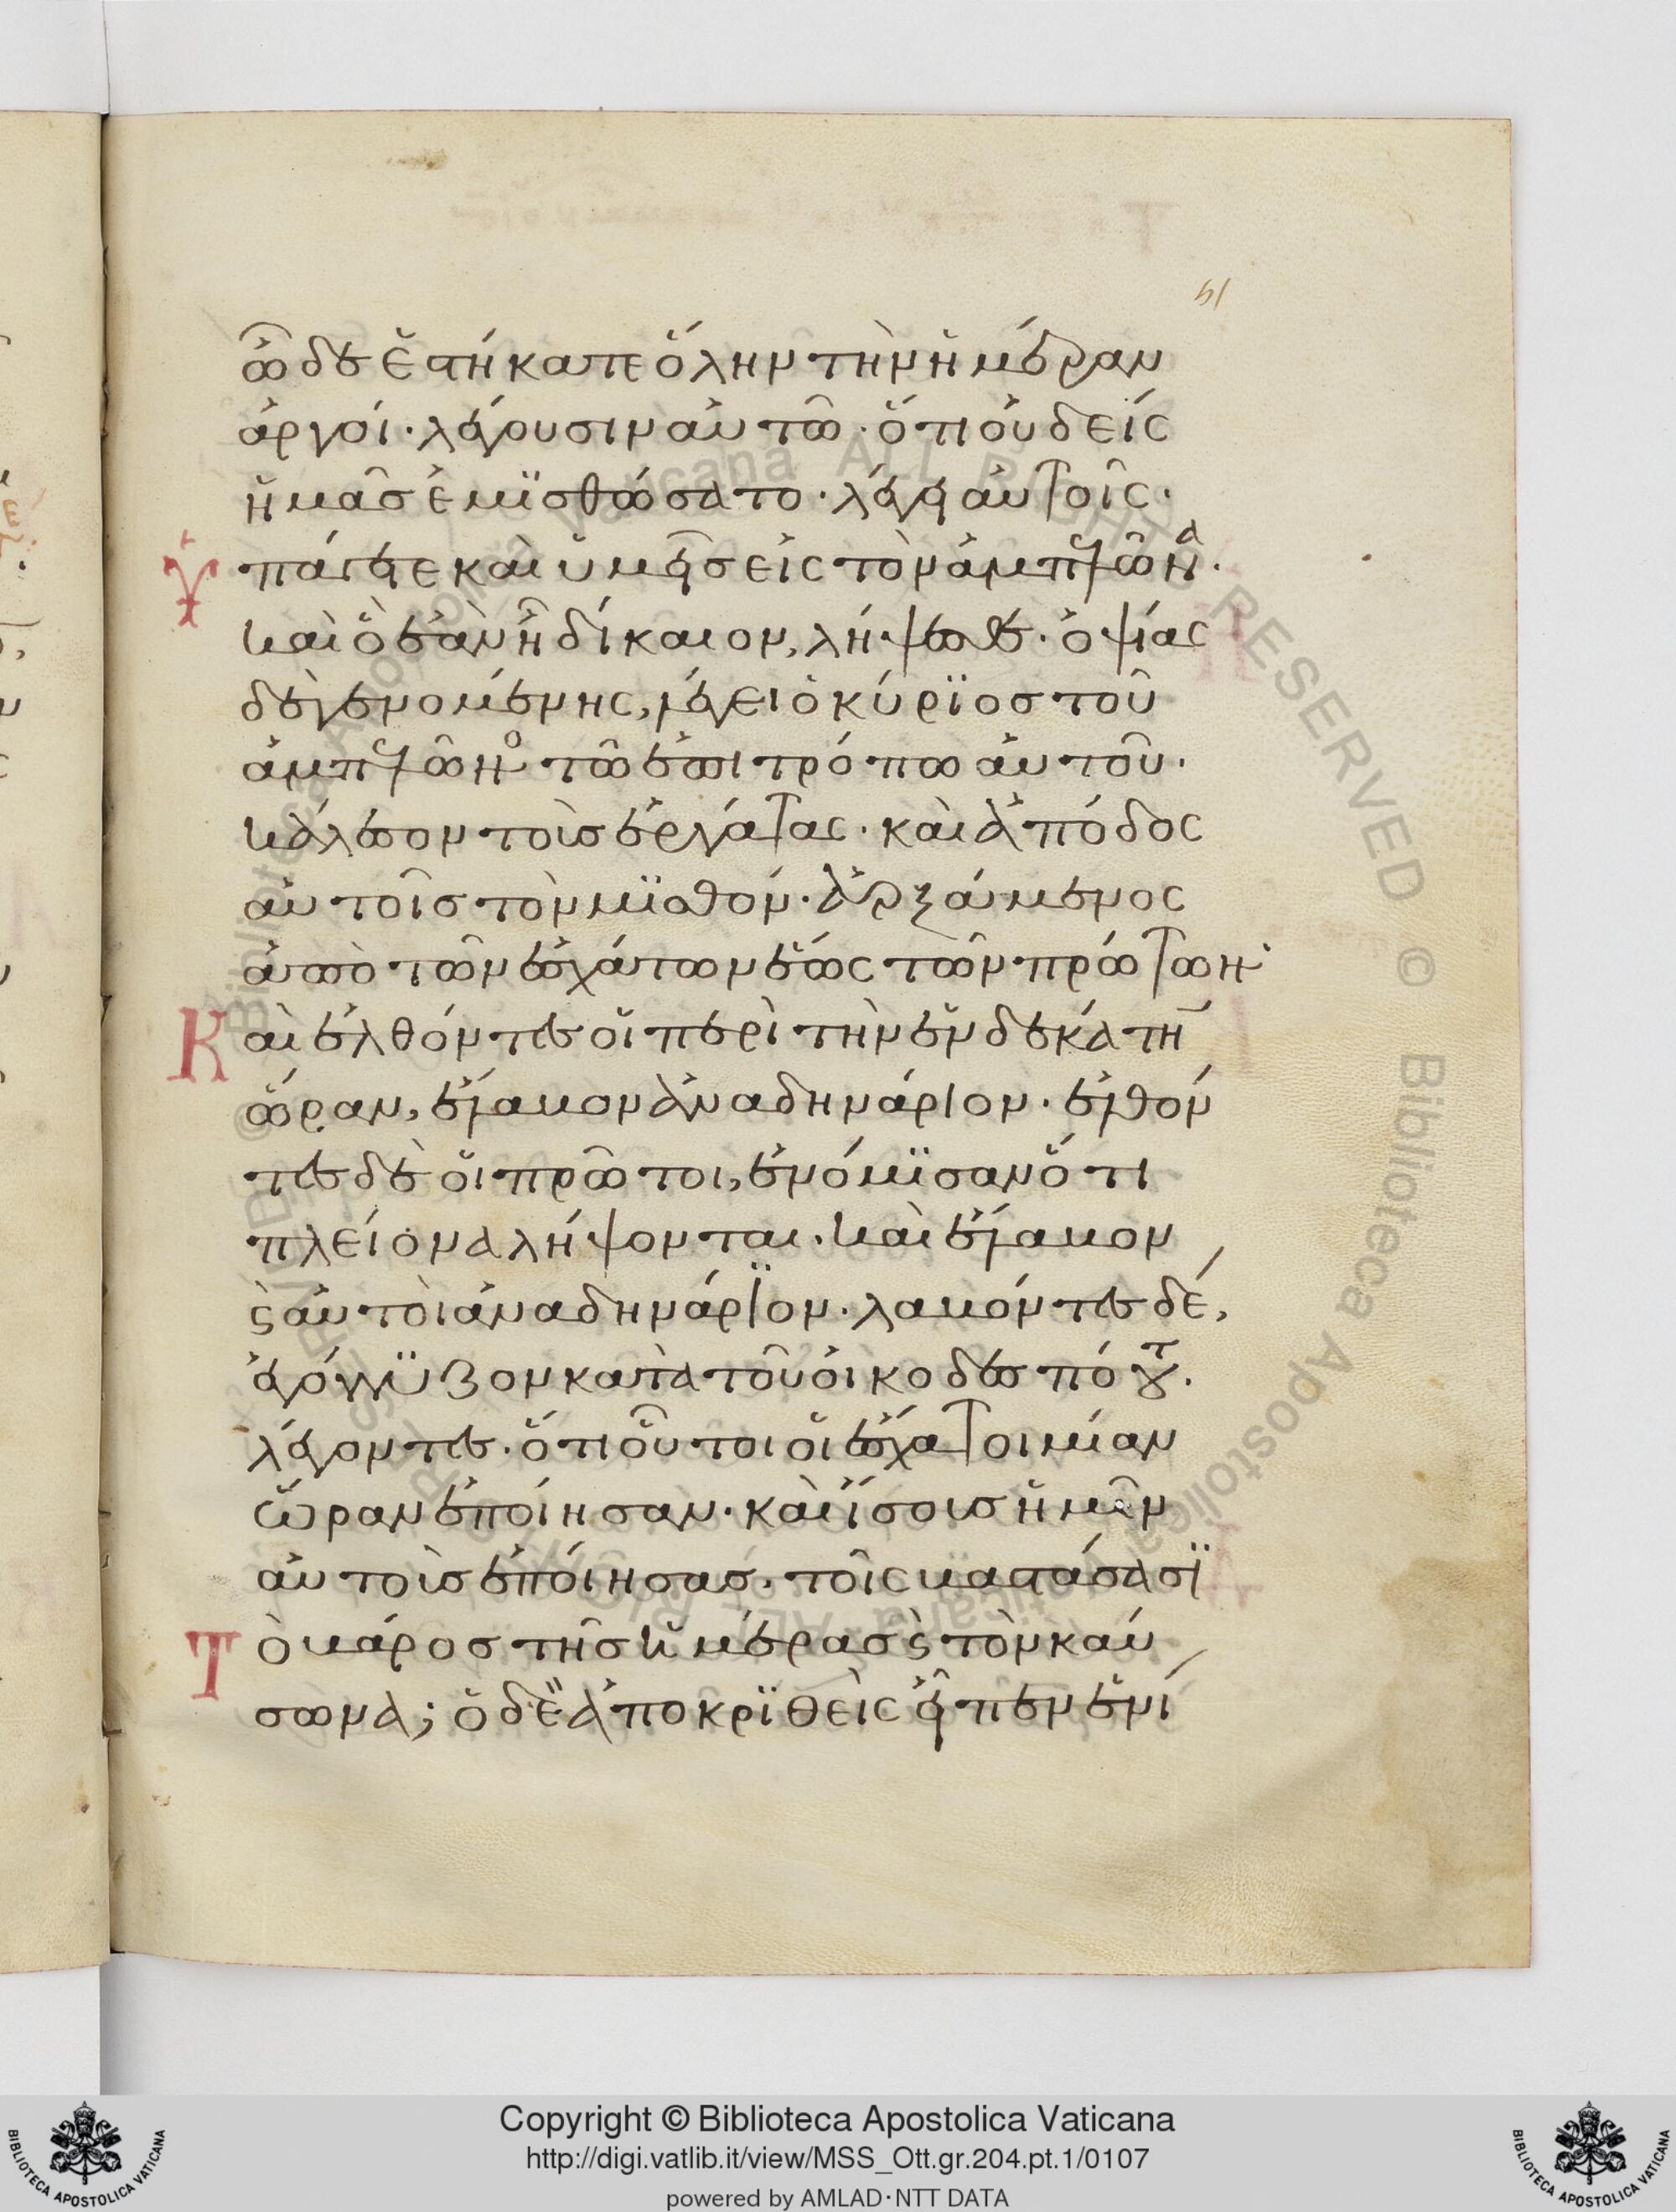 51
ὧδε ἑστήκατε ὅλην τὴν ἡμέραν
ἀργοί· λέγουσιν αὐτῶ· ὅτι οὐδεὶς
ἡμᾶς ἐμϊσθώσατο· λέγει αὐτοῖς·
Ὑπάγετε καὶ ὑμεῖς εἰς τὸν ἀμπελῶνα·
καὶ ὃ ἐὰν ἦ δίκαιον, λήψεσθε· ὀψίας
δὲ γενομένης, λέγει ὁ κύρϊος τοῦ
ἀμπελῶνο τῶ ἐπιτρόπω αὐτοῦ·
κάλεσον τοὺς ἐργάτας· καὶ ἀπόδος
αὐτοῖς τὸν μϊσθόν· ἀρξάμενος
ἀπὸ τῶν ἐσχάτων ἕως τῶν πρώτων·
Καὶ ἐλθόντες οἱ περὶ τὴν ἑνδεκάτην
ὥραν, ἔλαβον ἀνα δηνάριον· ἐλθόν
τες δὲ οἱ πρῶτοι, ἐνόμϊσαν ὅτι
πλείονα λήψονται· καὶ ἔλαβον
ϛ αὐτοὶ ἀνα δηνάρϊον· λαβόντες δέ,
ἐγόγγϋζον κατὰ τοῦ οἰκοδεσπότου·
λέγοντες· ὅτι οὗτοι οἱ ἔσχατοι μίαν
ὥραν ἐποίησαν· καὶ ἴσους ἡμῖν
αὐτοὺς ἐποίησας· τοῖς βαστάσασϊ
Τὸ βάρος τῆς ἡμέρας ϛ τὸν καύ
σωνα; ὁ δὲ ἀποκρϊθεὶς εἶπεν ἑνί
Copyright © Biblioteca Apostolica Vaticana
http://digi.vatlib.it/view/MSS_Ott.gr.204.pt.1/0107
powered by AMLAD·NTT DATA
BIBLIOTECA APOSTOLICA VATICANA
BIBLIOTECA APOSTOLICA VATICANA